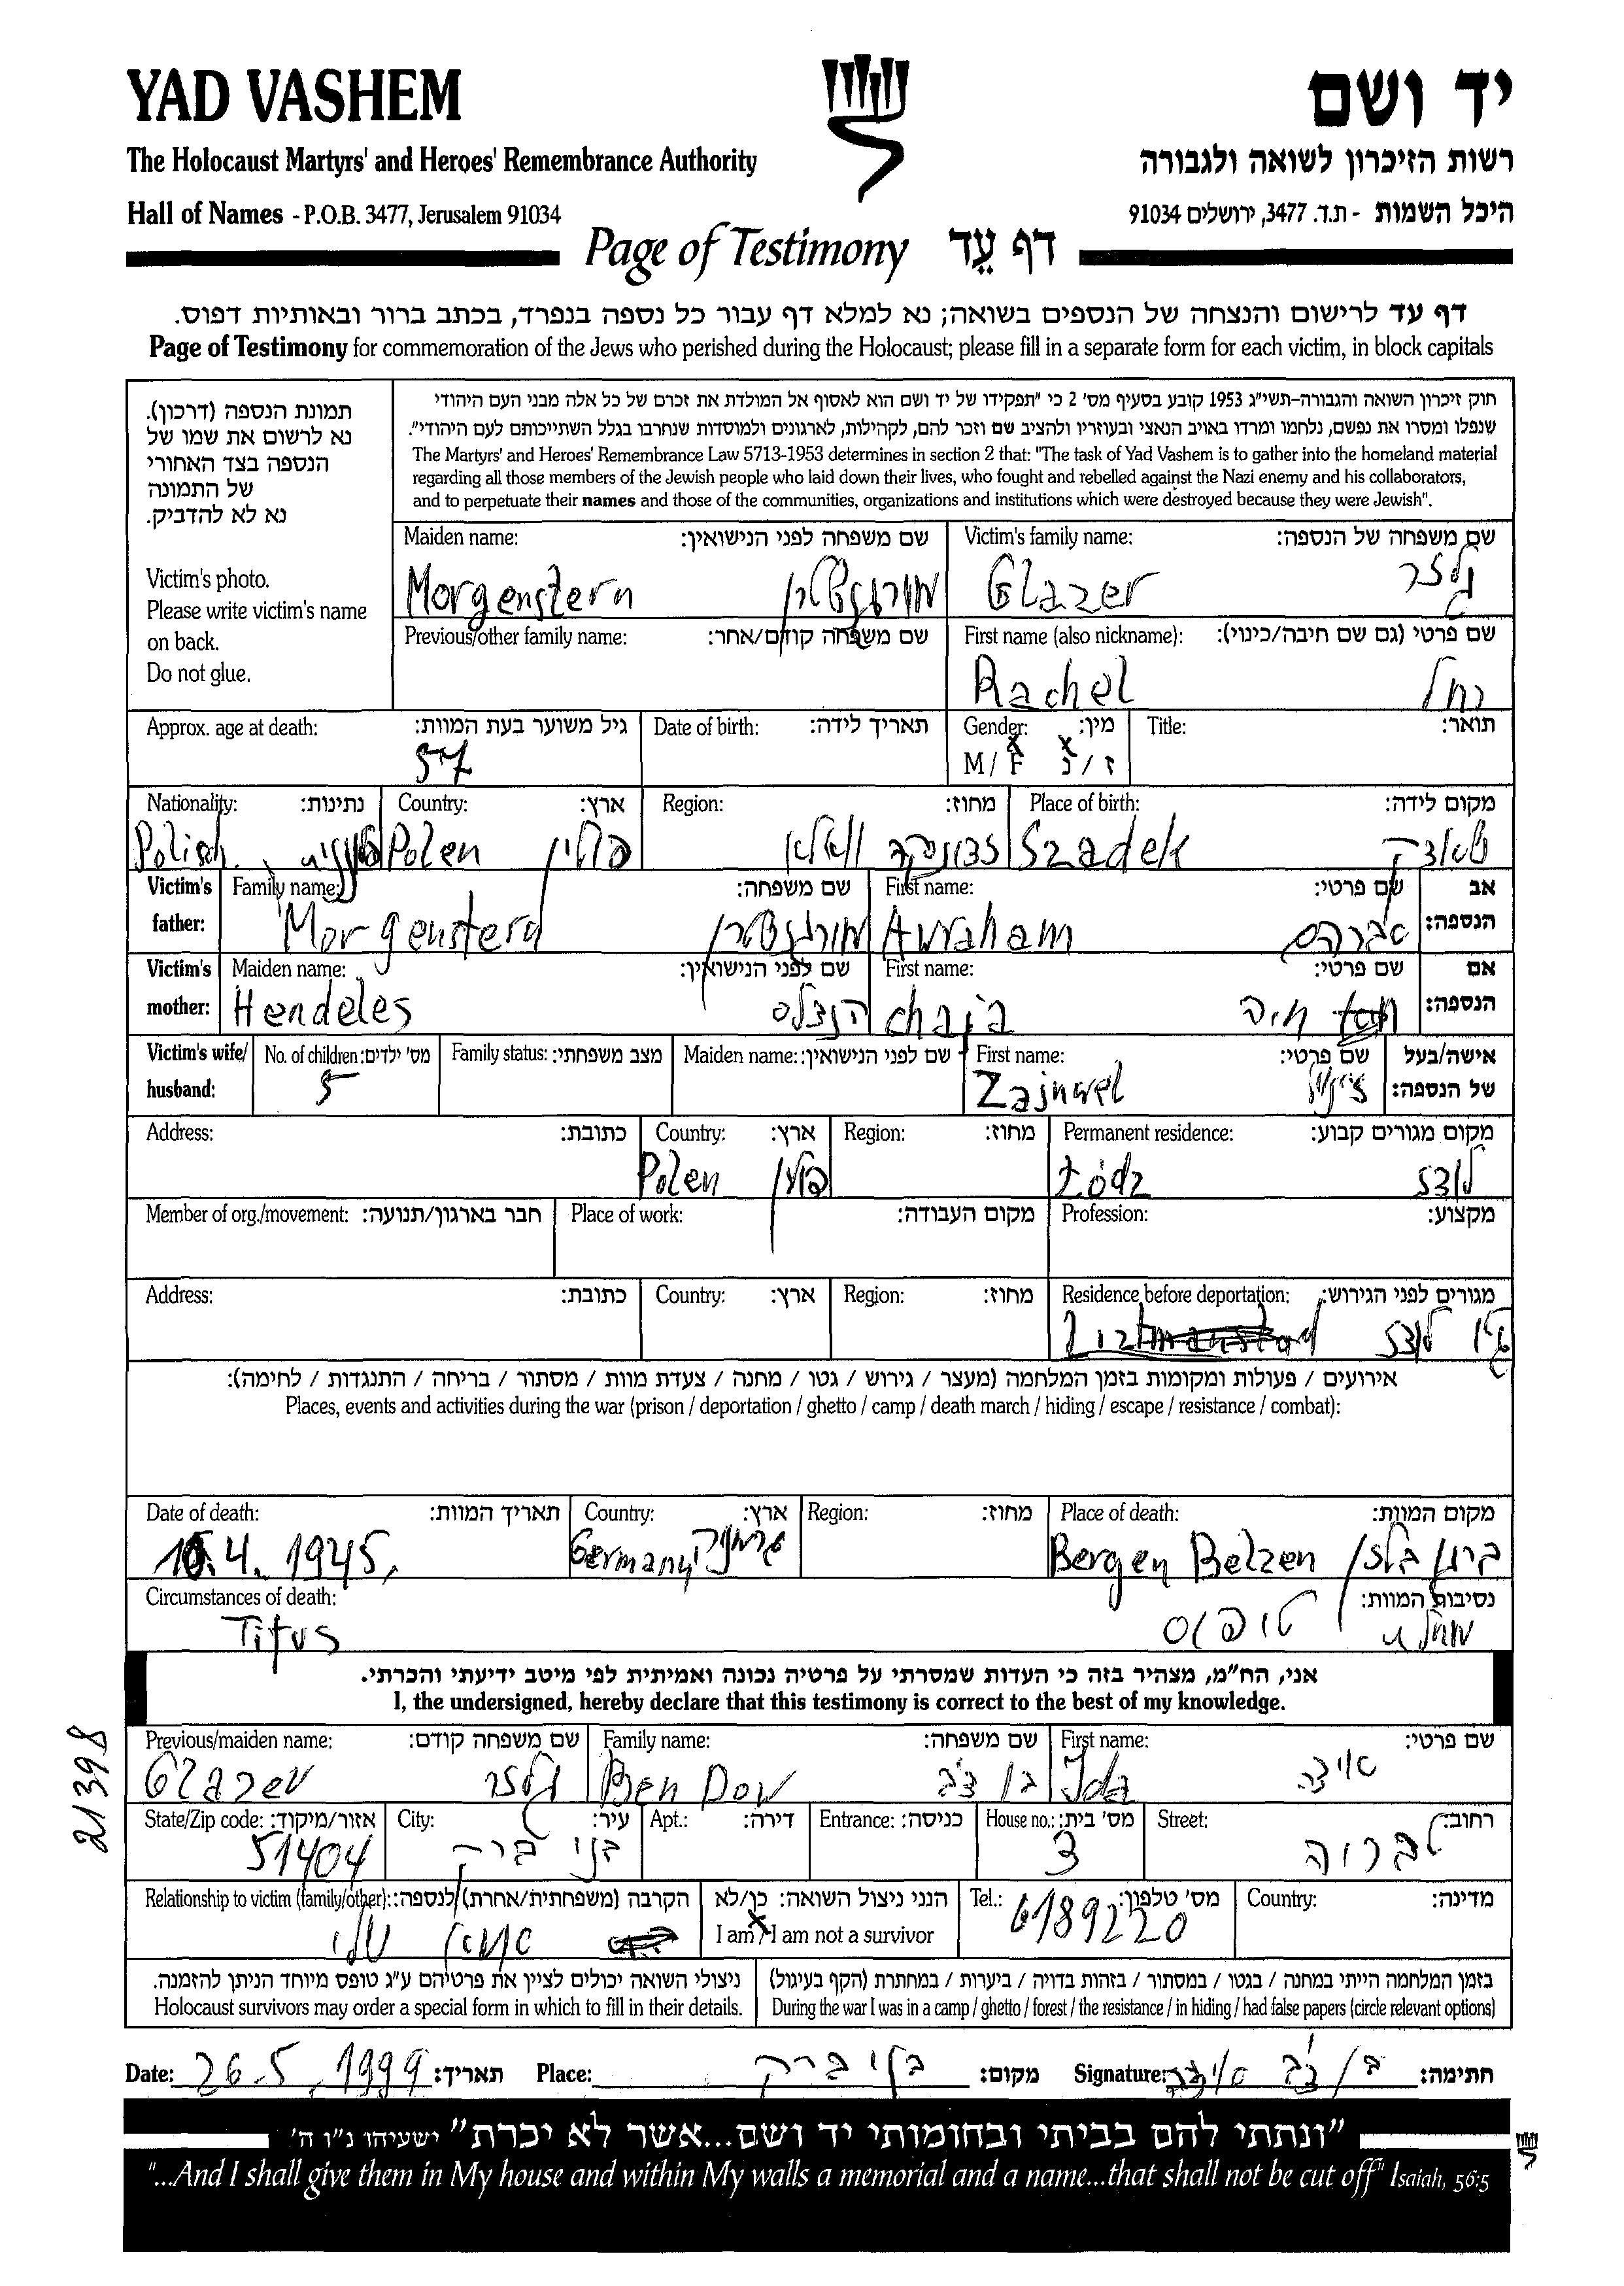 YAD VASHEM
יד ושם
The Holocaust Martyrs' and Heroes' Remembrance Authority
רשות הזיכרון לשואה ולגבורה
Hall of Names - P.O.B. 3477, Jerusalem 91034
היכל השמות - ת.ד. 3477, ירושלים 91034
Page of Testimony דף עֵד
דף עד לרישום והנצחה של הנספים בשואה; נא למלא דף עבור כל נספה בנפרד, בכתב ברור ובאותיות דפוס.
Page of Testimony for commemoration of the Jews who perished during the Holocaust; please fill in a separate form for each victim, in block capitals
תמונת הנספה (דרכון).
נא לרשום את שמו של
הנספה בצד האחורי
של התמונה
נא לא להדביק.
Victim's photo.
Please write victim's name
on back.
Do not glue.
חוק זיכרון השואה והגבורה-תשי"ג 1953 קובע בסעיף מס' 2 כי "תפקידו של יד ושם הוא לאסוף אל המולדת את זכרם של כל אלה מבני העם היהודי
שנפלו ומסרו את נפשם, נלחמו ומרדו באויב הנאצי ובעוזריו ולהציב שם וזכר להם, לקהילות, לארגונים ולמוסדות שנחרבו בגלל השתייכותם לעם היהודי".
The Martyrs' and Heroes' Remembrance Law 5713-1953 determines in section 2 that: "The task of Yad Vashem is to gather into the homeland material
regarding all those members of the Jewish people who laid down their lives, who fought and rebelled against the Nazi enemy and his collaborators,
and to perpetuate their names and those of the communities, organizations and institutions which were destroyed because they were Jewish".
Maiden name: שם משפחה לפני הנישואין: Victim's family name: שם משפחה של הנספה:
Morgenstern מורגנשטרן Glazer גלזר
Previous/other family name: שם משפחה קודם/אחר: First name (also nickname): שם פרטי (גם שם חיבה/כינוי):
Rachel רחל
Approx. age at death: גיל משוער בעת המוות: Date of birth: תאריך לידה: Gender: מין: Title: תואר:
57 M / F ז / נ
Nationality: נתינות: Country: ארץ: Region: מחוז: Place of birth: מקום לידה:
Polish Polen פולין Szadek שאדק
Victim's father: Family name: שם משפחה: First name: שם פרטי: אב הנספה:
Morgenstern מורגנשטרן Avraham אברהם
Victim's mother: Maiden name: שם לפני הנישואין: First name: שם פרטי: אם הנספה:
Hendeles הנדלס Chaja חיה
Victim's wife/ husband: No. of children: מס' ילדים: Family status: מצב משפחתי: Maiden name: שם לפני הנישואין: First name: שם פרטי: אישה/בעל של הנספה:
5 Zajnwel
Address: כתובת: Country: ארץ: Region: מחוז: Permanent residence: מקום מגורים קבוע:
Polen פולין Łódz לודז
Member of org./movement: חבר בארגון/תנועה: Place of work: מקום העבודה: Profession: מקצוע:
Address: כתובת: Country: ארץ: Region: מחוז: Residence before deportation: מגורים לפני הגירוש:
גטו לודז
אירועים / פעולות ומקומות בזמן המלחמה (מעצר / גירוש / גטו / מחנה / צעדת מוות / מסתור / בריחה / התנגדות / לחימה):
Places, events and activities during the war (prison / deportation / ghetto / camp / death march / hiding / escape / resistance / combat):
Date of death: תאריך המוות: Country: ארץ: Region: מחוז: Place of death: מקום המוות:
4. 1945, Germany גרמניה Bergen Belzen ברגן בלזן
Circumstances of death: נסיבות המוות:
Tifus טיפוס
אני, הח"מ, מצהיר בזה כי העדות שמסרתי על פרטיה נכונה ואמיתית לפי מיטב ידיעתי והכרתי.
I, the undersigned, hereby declare that this testimony is correct to the best of my knowledge.
21398
Previous/maiden name: שם משפחה קודם: Family name: שם משפחה: First name: שם פרטי:
Glazer גלזר Ben Dov בן דב Ida אידה
State/Zip code: אזור/מיקוד: City: עיר: Apt.: דירה: Entrance: כניסה: House no.: מס' בית: Street: רחוב:
51404 בני ברק 3
Relationship to victim (family/other): הקרבה (משפחתית/אחרת) לנספה: הנני ניצול השואה: כן/לא Tel.: מס' טלפון: Country: מדינה:
I am / I am not a survivor
אמא שלי 6189220
ניצולי השואה יכולים לציין את פרטיהם ע"ג טופס מיוחד הניתן להזמנה.
Holocaust survivors may order a special form in which to fill in their details.
בזמן המלחמה הייתי במחנה / בגטו / במסתור / בזהות בדויה / ביערות / במחתרת (הקף בעיגול)
During the war I was in a camp / ghetto / forest / the resistance / in hiding / had false papers (circle relevant options)
Date: 26.5.1999 תאריך: Place: בני ברק מקום: Signature: בן דב אידה חתימה:
"ונתתי להם בביתי ובחומותי יד ושם...אשר לא יכרת" ישעיהו נ"ו ה'
"...And I shall give them in My house and within My walls a memorial and a name...that shall not be cut off" Isaiah, 56:5